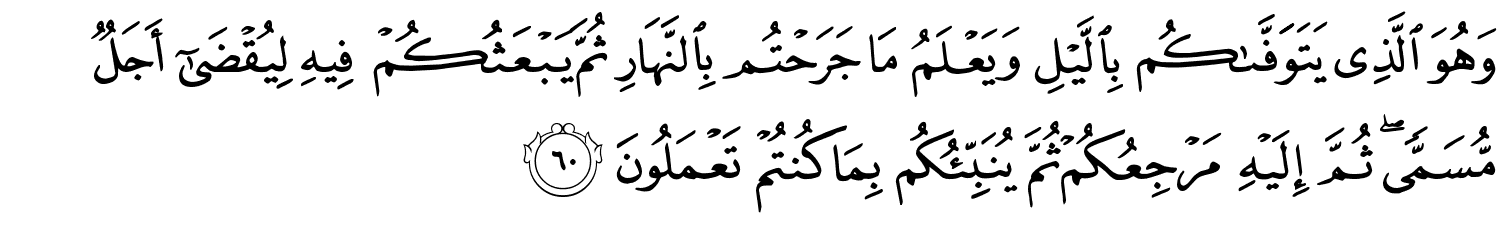 وَهُوَ ٱلَّذِى يَتَوَفَّىٰكُم بِٱلَّيْلِ وَيَعْلَمُ مَا جَرَحْتُم بِٱلنَّهَارِ ثُمَّ يَبْعَثُكُمْ فِيهِ لِيُقْضَىٰٓ أَجَلٌ
مُّسَمًّى ۖ ثُمَّ إِلَيْهِ مَرْجِعُكُمْ ثُمَّ يُنَبِّئُكُم بِمَا كُنتُمْ تَعْمَلُونَ ٦٠